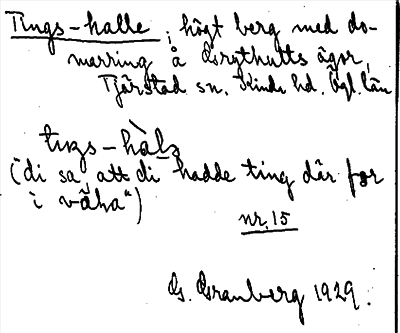 Tings-halle, högt berg med do-
marring å Borgthults ägor,
Tjärstad sn. Kinda hd. Ögl. län
tıŋs-hàlɜ
("di sa att di hadde ting där för
i väha")
nr. 15
G. Granberg 1929.